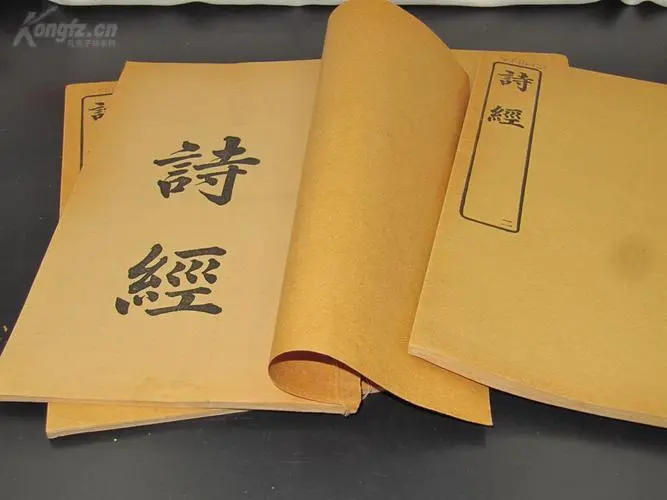 Kongfz.cn
孔夫子旧书网
詩
詩
經
詩
經
二